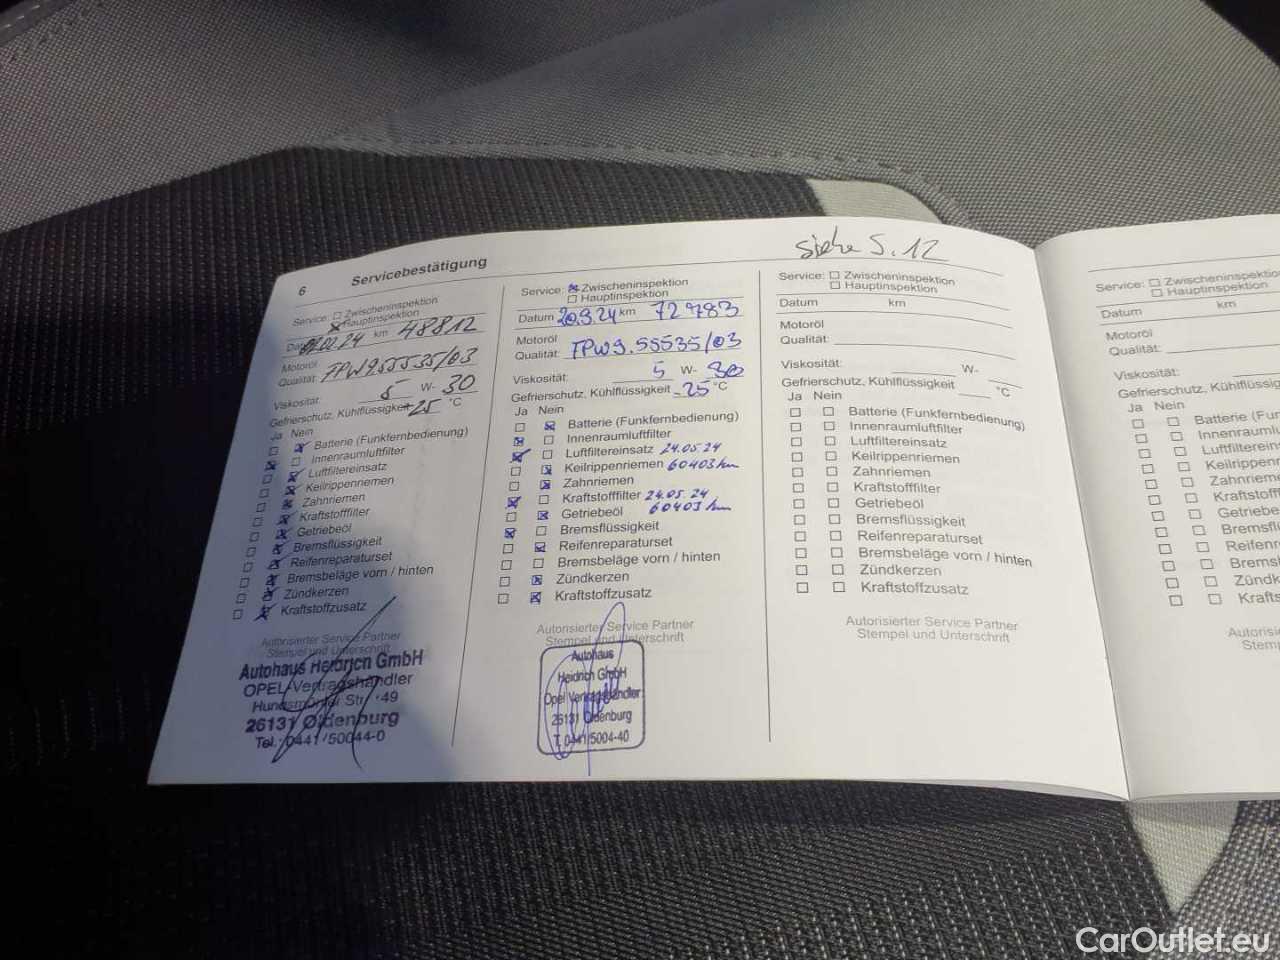 6 Servicebestätigung
Service: Zwischeninspektion
Hauptinspektion
Datum 07.02.24 km 48812
Motoröl
Qualität: FPW9.55535/03
Viskosität: 5 W- 30
Gefrierschutz, Kühlflüssigkeit -25 °C
Ja Nein
Batterie (Funkfernbedienung)
Innenraumluftfilter
Luftfiltereinsatz
Keilrippenriemen
Zahnriemen
Kraftstofffilter
Getriebeöl
Bremsflüssigkeit
Reifenreparaturset
Bremsbeläge vorn / hinten
Zündkerzen
Kraftstoffzusatz
Autorisierter Service Partner
Stempel und Unterschrift
Autohaus Heidrich GmbH
OPEL-Vertragshändler
Hundsmühler Str. 49
26131 Oldenburg
Tel.: 0441/50044-0
Service: Zwischeninspektion
Hauptinspektion
Datum 20.9.24 km 72783
Motoröl
Qualität: FPW9.55535/03
Viskosität: 5 W- 30
Gefrierschutz, Kühlflüssigkeit -25 °C
Ja Nein
Batterie (Funkfernbedienung)
Innenraumluftfilter
Luftfiltereinsatz 24.05.24
Keilrippenriemen 60403 km
Zahnriemen
Kraftstofffilter 24.05.24
Getriebeöl 60403 km
Bremsflüssigkeit
Reifenreparaturset
Bremsbeläge vorn / hinten
Zündkerzen
Kraftstoffzusatz
Autorisierter Service Partner
Stempel und Unterschrift
Autohaus
Heidrich GmbH
Opel Vertragshändler
26131 Oldenburg
T. 0441/5004-40
siehe S. 12
Service: Zwischeninspektion
Hauptinspektion
Datum km
Motoröl
Qualität:
Viskosität: W-
Gefrierschutz, Kühlflüssigkeit °C
Ja Nein
Batterie (Funkfernbedienung)
Innenraumluftfilter
Luftfiltereinsatz
Keilrippenriemen
Zahnriemen
Kraftstofffilter
Getriebeöl
Bremsflüssigkeit
Reifenreparaturset
Bremsbeläge vorn / hinten
Zündkerzen
Kraftstoffzusatz
Autorisierter Service Partner
Stempel und Unterschrift
Service: Zwischeninspektio
Hauptinspektion
Datum km
Motoröl
Qualität:
Viskosität:
Gefrierschutz, Kühlflüss
Ja Nein
Batterie (Funk
Innenraumlu
Luftfiltereins
Keilrippenri
Zahnriemen
Kraftstofffil
Getriebe
Bremsflü
Reifenr
Bremsb
Zündk
Krafts
Autorisi
Stemp
CarOutlet.eu